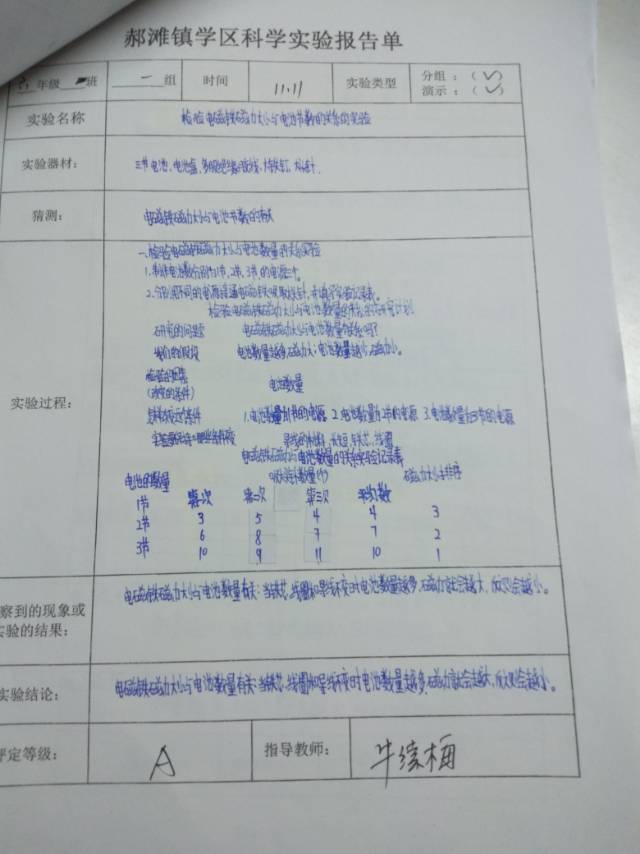 郝滩镇学区科学实验报告单
年级 班 一组 时间 11.11 实验类型 分组：（✓）
演示：（✓）
实验名称 检验电磁铁磁力大小与电池节数的关系的实验
实验器材： 三节电池、电池盒、大铁钉、大头针
猜测： 电磁铁磁力大小与电池节数有关
实验过程：
一、检验电磁铁磁力大小与电池数量的关系实验
1. 制作电池数分别为1节、2节、3节的电源三个。
2. 分别用不同的电源接通电磁铁吸取大头针，并填写实验记录表。
检验电磁铁磁力大小与电池数量的关系的研究计划
研究的问题 电磁铁磁力大小与电池数量有关系吗？
我们的假设 电池数量越多磁力大；电池数量越少，磁力小。
检验的因素
(改变的条件) 电池数量
怎样改变条件 1. 电池数量为1节的电源 2. 电池数量为2节的电源 3. 电池数量为3节的电源
电磁铁磁力大小与电池数量的关系实验记录表
电池的数量 吸大头针数量(个) 磁力大小排序
第一次 第二次 第三次 平均数
1节 3 5 4 4 3
2节 6 8 7 7 2
3节 10 9 11 10 1
察到的现象或
实验的结果：
电磁铁磁力大小与电池数量有关：当铁芯、线圈和导线不变时电池数量越多，磁力就会越大，反之则会越小。
实验结论： 电磁铁磁力大小与电池数量有关：当铁芯、线圈和导线不变时电池数量越多，磁力就会越大，反之则会越小。
评定等级： A 指导教师：